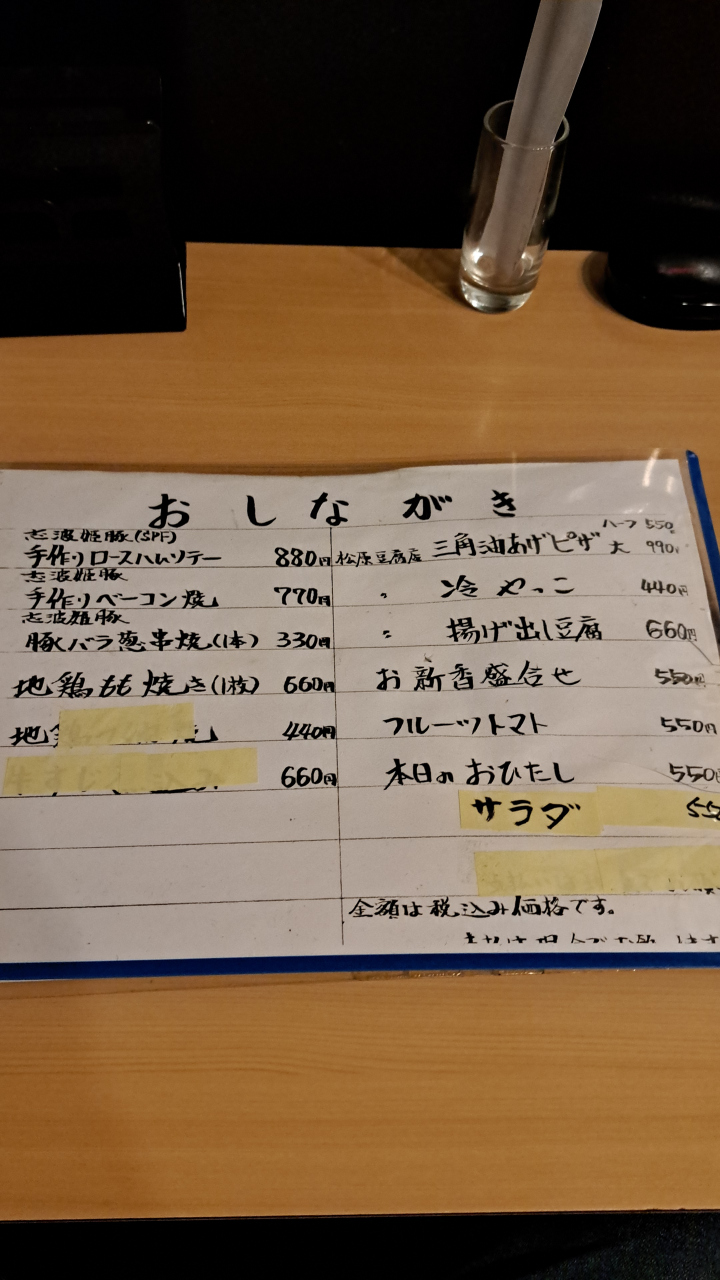 おしながき
志波姫豚(SPF)
手作りロースハムソテー 880円
志波姫豚
手作りベーコン焼 770円
志波姫豚
豚バラ葱串焼(1本) 330円
地鶏もも焼き(1枚) 660円
地 440円
660円
ハーフ 550
松原豆腐店 三角油あげピザ 大 990
〃 冷やっこ 440円
〃 揚げ出し豆腐 660円
お新香盛合せ 550円
フルーツトマト 550円
本日のおひたし 550
サラダ 55
金額は税込み価格です。